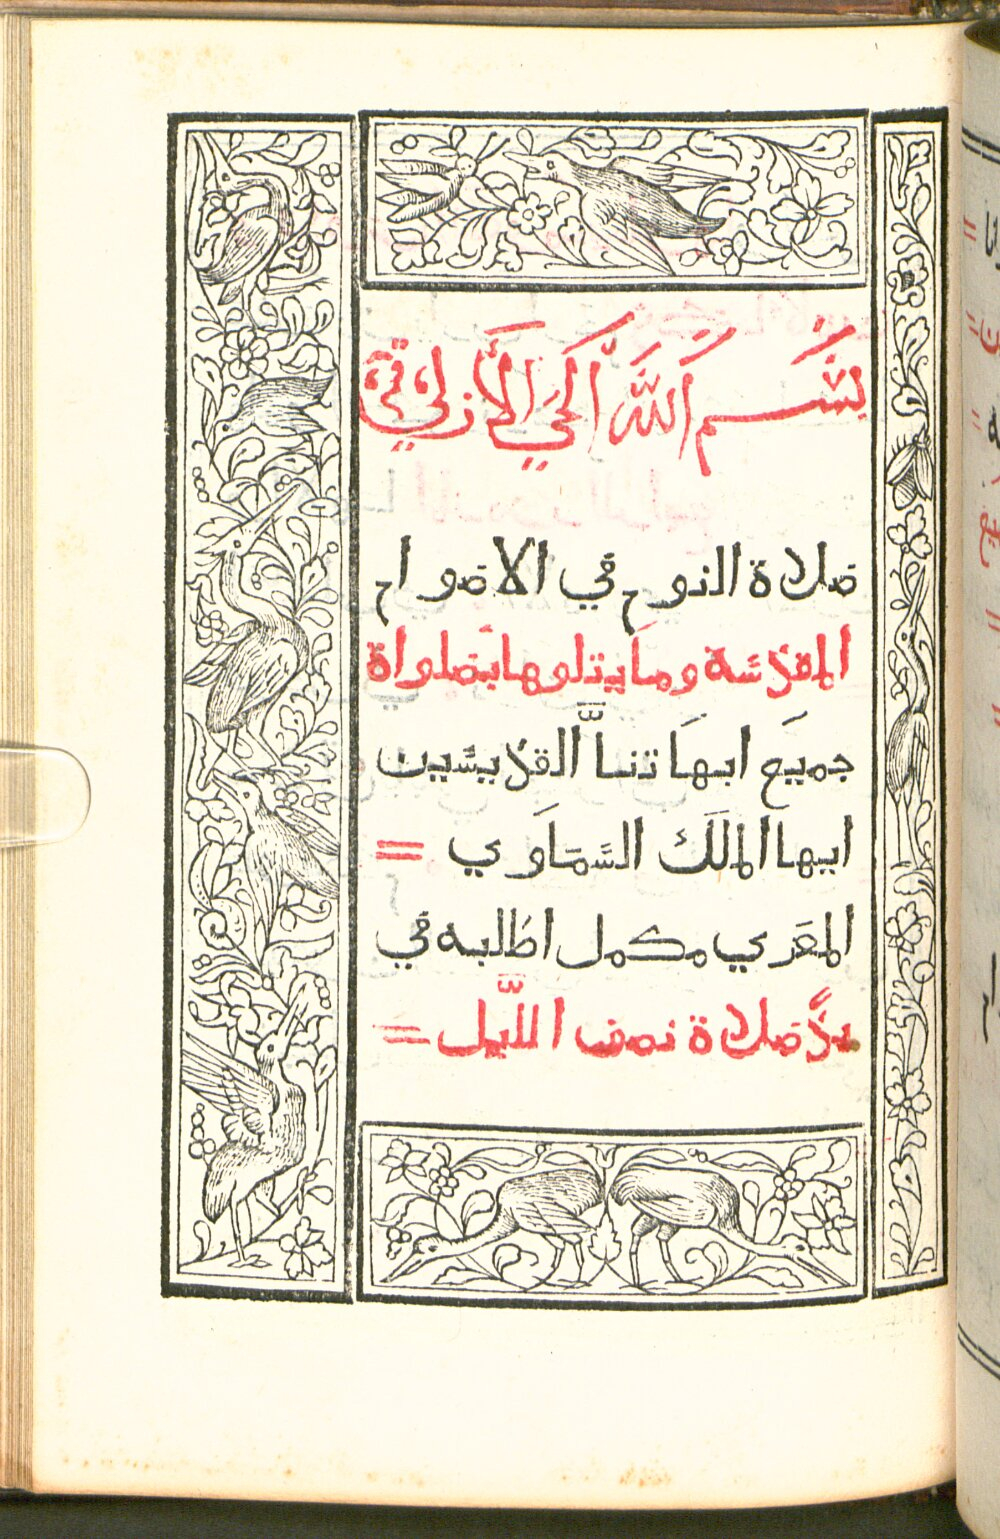 بِسْمِ اللّٰه الحَي الأزَلي
صلاة النوم في الاصواح
المقدسة وما يتلوها بصلواة
جميع ابهاتنا القديسين
ايها الملك السماوي =
المعري مكمل اطلبه في
بدّ صلاة نصف الليل =